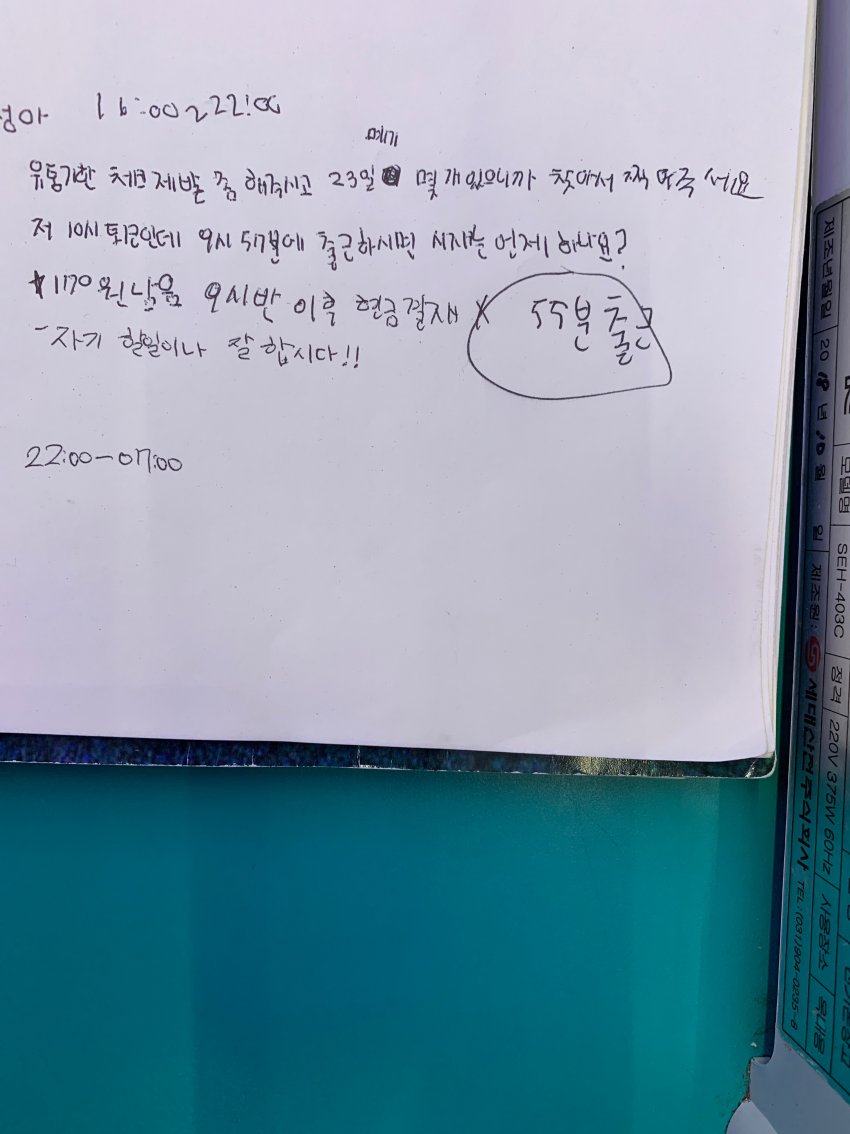 16:00~22:00
폐기
유통기한 체크 제발 좀 해주시고 23일 몇 개 있으니까 찾아서 찍어주세요
저 10시 퇴근인데 9시 57분에 출근하시면 시재는 언제 하나요?
1170원 남음 9시반 이후 현금결재 X 55분 출근
- 자기 할일이나 잘 합시다!!
22:00-07:00
제조년월일 2018년 10월 일 제조원: 세대산전주식회사 TEL: (031)904-0295-8
모델명 SEH-403C 정격 220V 375W 60Hz 사용장소 옥내용